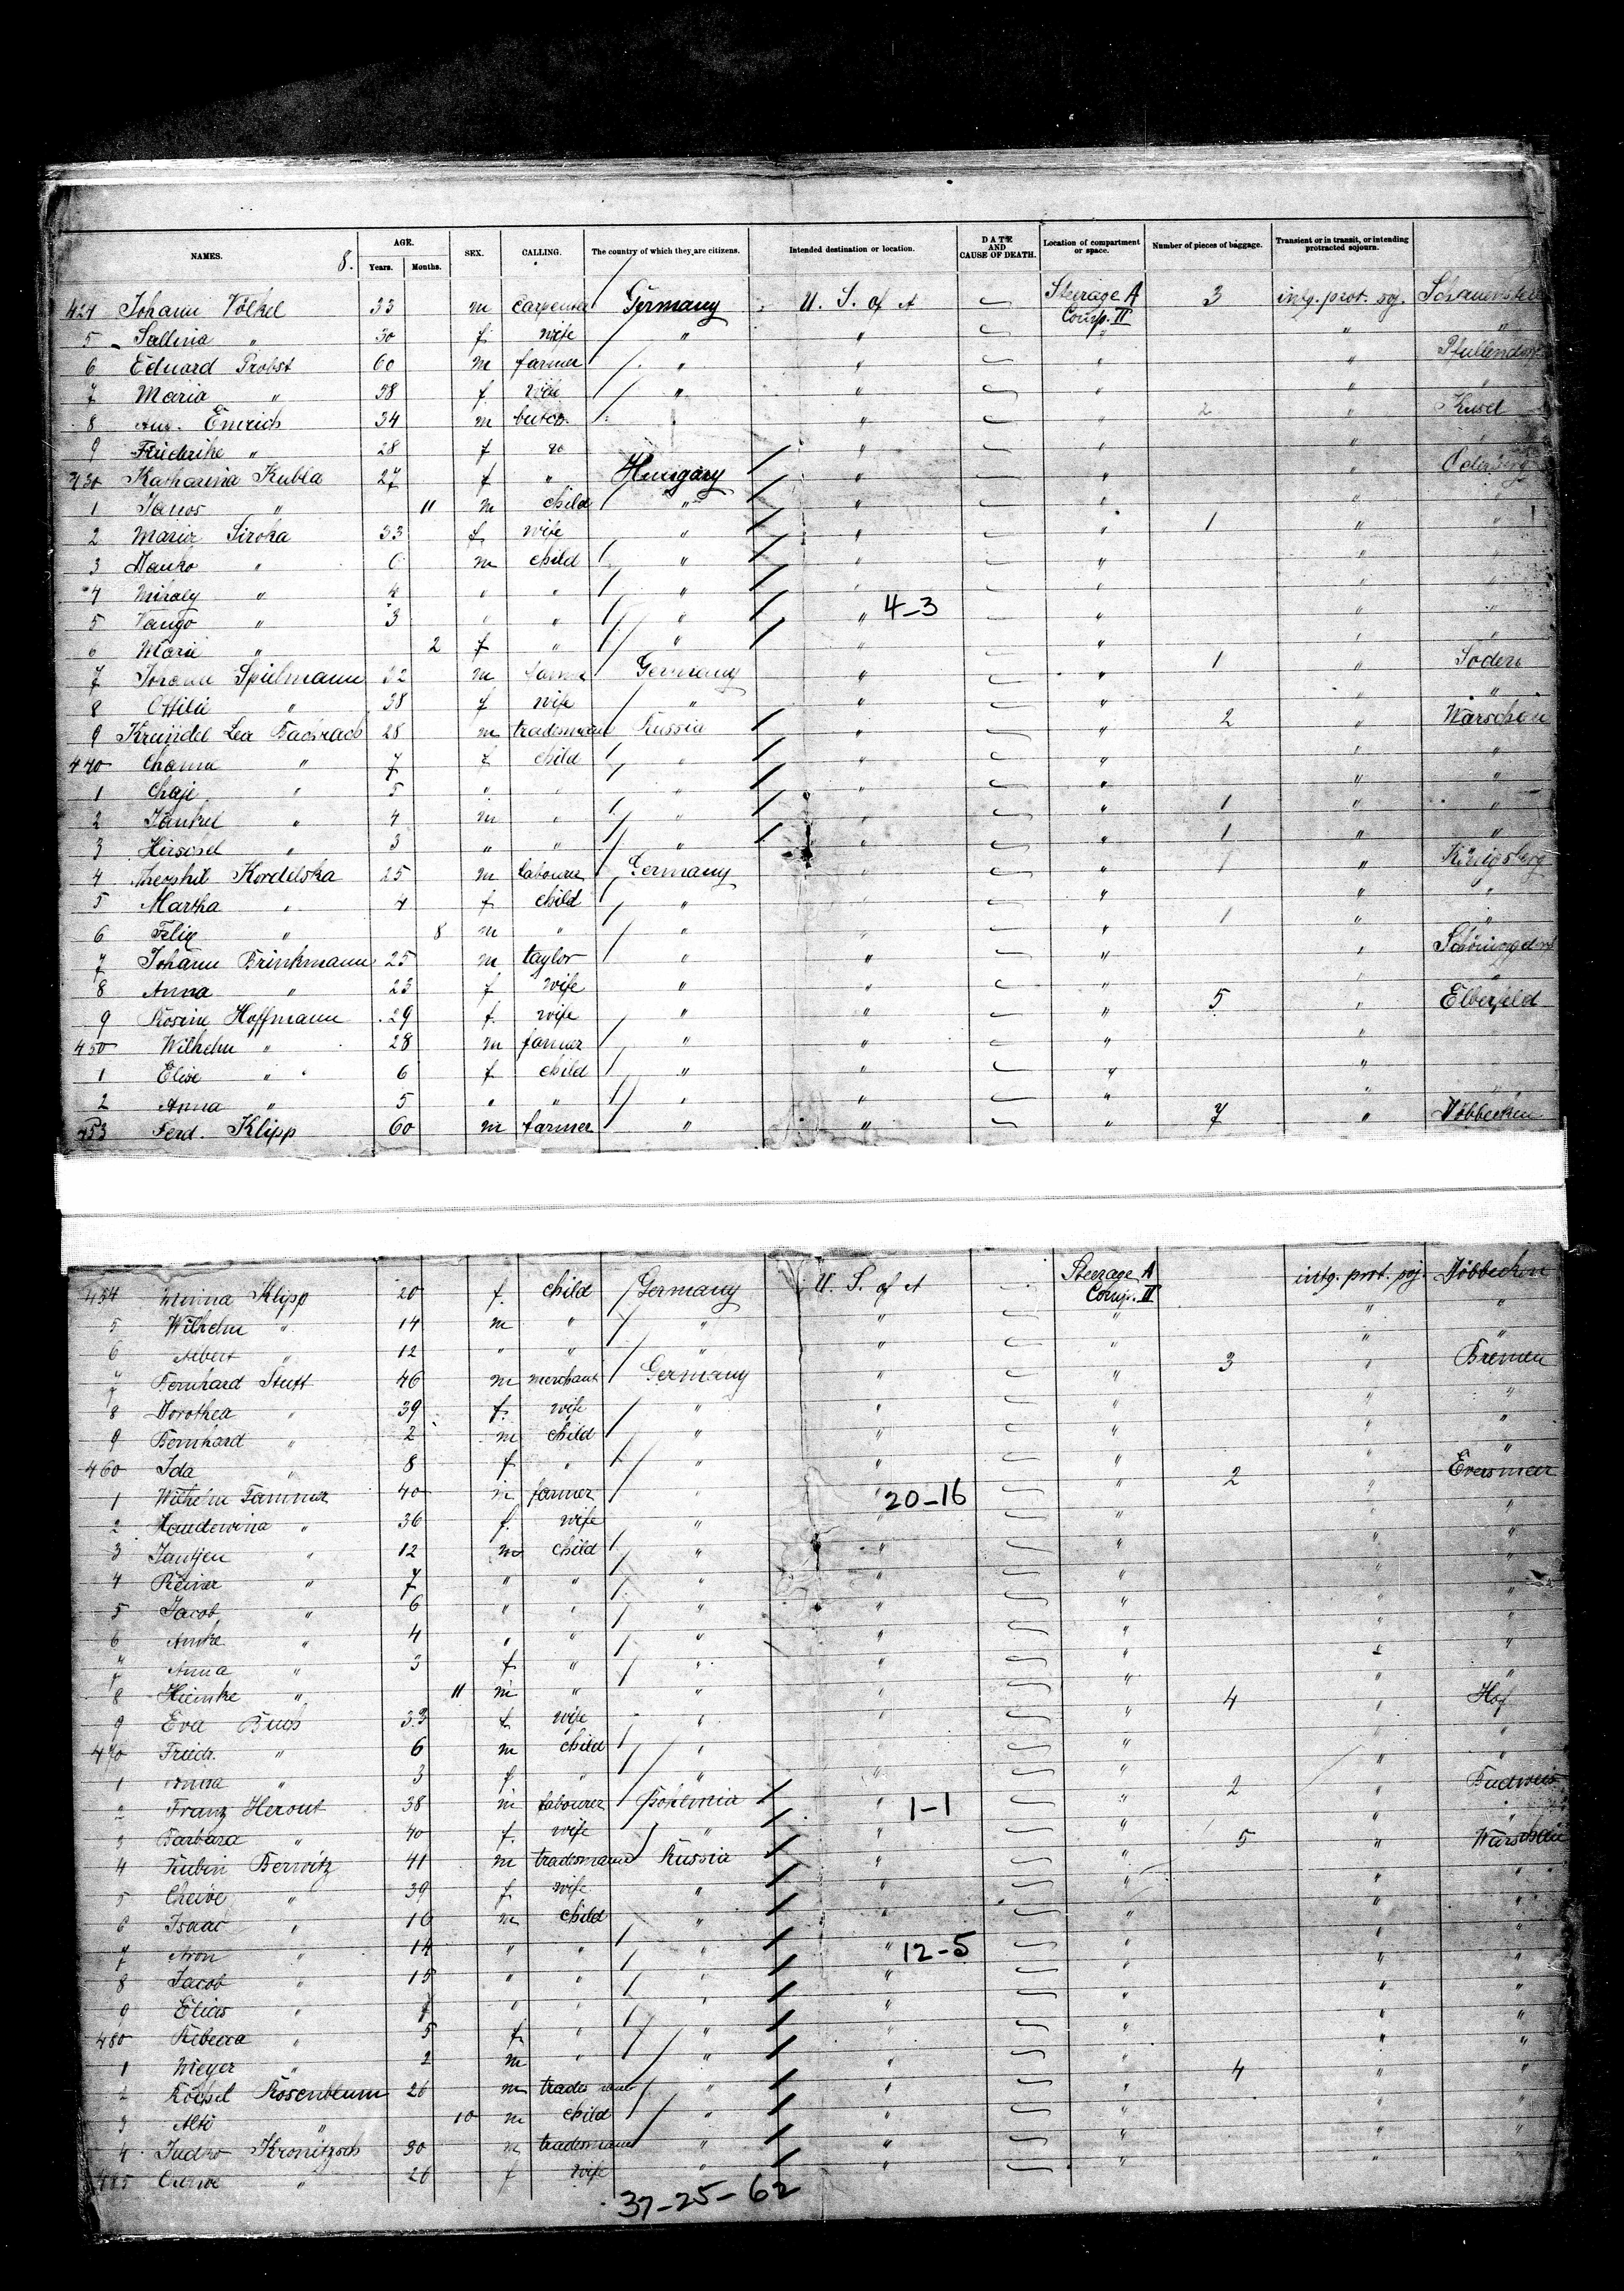 NAMES. 8. AGE. Years. Months. SEX. CALLING. The country of which they are citizens. Intended destination or location. DATE AND CAUSE OF DEATH. Location of compartment or space. Number of pieces of baggage. Transient or in transit, or intending protracted sojourn.
424 Johann Völkel 33 m carpenter Germany U. S. of A Steerage A Comp. II 3 intg. prot. soj.
5 Sallina " 30 f wife " " " "
6 Eduard Probst 60 m farmer " " " " Pfullendorf
7 Maria " 38 f wife " " " " "
8 Emrich 34 m " " " 2 " Kusel
9 Friederike " 28 f " " "
430 Katharina Kubla 27 f " Hungary " " " Oderberg
1 Janos " 11 m child " " " " "
2 Maria Siroka 33 f wife " " " 1 " "
3 Hanko " 6 m child " " " " "
4 Mihaly " 4 " " " " " " "
5 " 3 " " " " 4-3 " " "
6 Marie " 2 f " " " " " "
7 Johann Spielmann 32 m Germany " " 1 " Soden
8 Ottilie " 38 f wife " " " " "
9 Kreindel Lea Bachrach 28 m tradesman Russia " " 2 " Warschau
440 Channe " 7 f child " " " " "
1 Chaje " 5 " " " " " " "
2 Jankel " 4 m " " " " 1 " "
3 Hirschel " 3 " " " " " 1 " "
4 Theophil Kordelska 25 m labourer Germany " " 1 " Königsberg
5 Martha " 4 f child " " " " "
6 Felix " 8 m " " " " 1 " "
7 Johann Brinkmann 25 m taylor " " " "
8 Anna " 23 f wife " " " " "
9 Rosine Hoffmann 29 f. wife " " " 5 " Elberfeld
450 Wilhelm " 28 m farmer " " " "
1 Elise " 6 f child " " " "
2 Anna " 5 " " " " " " "
453 Ferd. Klipp 60 m farmer " " " 7 " Döbberken
454 Minna Klipp 20 f. child Germany U. S. of A Steerage A Comp. II intg. prot. soj. Döbberken
5 Wilhelm " 14 m " " " " " "
6 Albert " 12 " " " " " " "
7 Bernhard Stutt 46 m merchant Germany " " 3 " Bremen
8 Dorothea " 39 f. wife " " " " "
9 Bernhard " 2 m child " " " " "
460 Ida " 8 f " " " " "
1 Wilhelm 40 m farmer " " 20-16 " 2 " Eversmeer
2 " 36 f. wife " " " "
3 Jantjen " 12 m child " " " " "
4 Reiner " 7 " " " " " " "
5 Jacob " 6 " " " " " " "
6 Anke " 4 " " " " " " "
7 Anna " 3 f " " " " " "
8 Heinke " 11 m " " " " " "
9 Eva Buch 33 f wife " " " 4 " Hof
470 Friedr. " 6 m child " " " "
1 Anna " 3 f " " " " " "
2 Franz Herout 38 m labourer Bohemia " 1-1 " 2 " Budweis
3 Barbara " 40 f. wife " " " "
4 Rubin Berwitz 41 m tradesmann Russia " " 5 " Warschau
5 Cheive " 39 f wife " " " " "
6 Isaac " 16 m child " " " " "
7 Aron " 14 " " " " 12-5 " " "
8 Jacob " 15 " " " " " " "
9 Elias " 7 " " " " " " "
480 Rebecca " 5 f " " " " " "
1 Meyer " 2 m " " " " " "
2 Rosenblum 26 m tradesman " " " 4 " "
3 " 10 m child " " " " "
4 Judko Kronitzsch 30 m tradesmann " " " " "
485 " 26 f wife " " " "
37-25-62